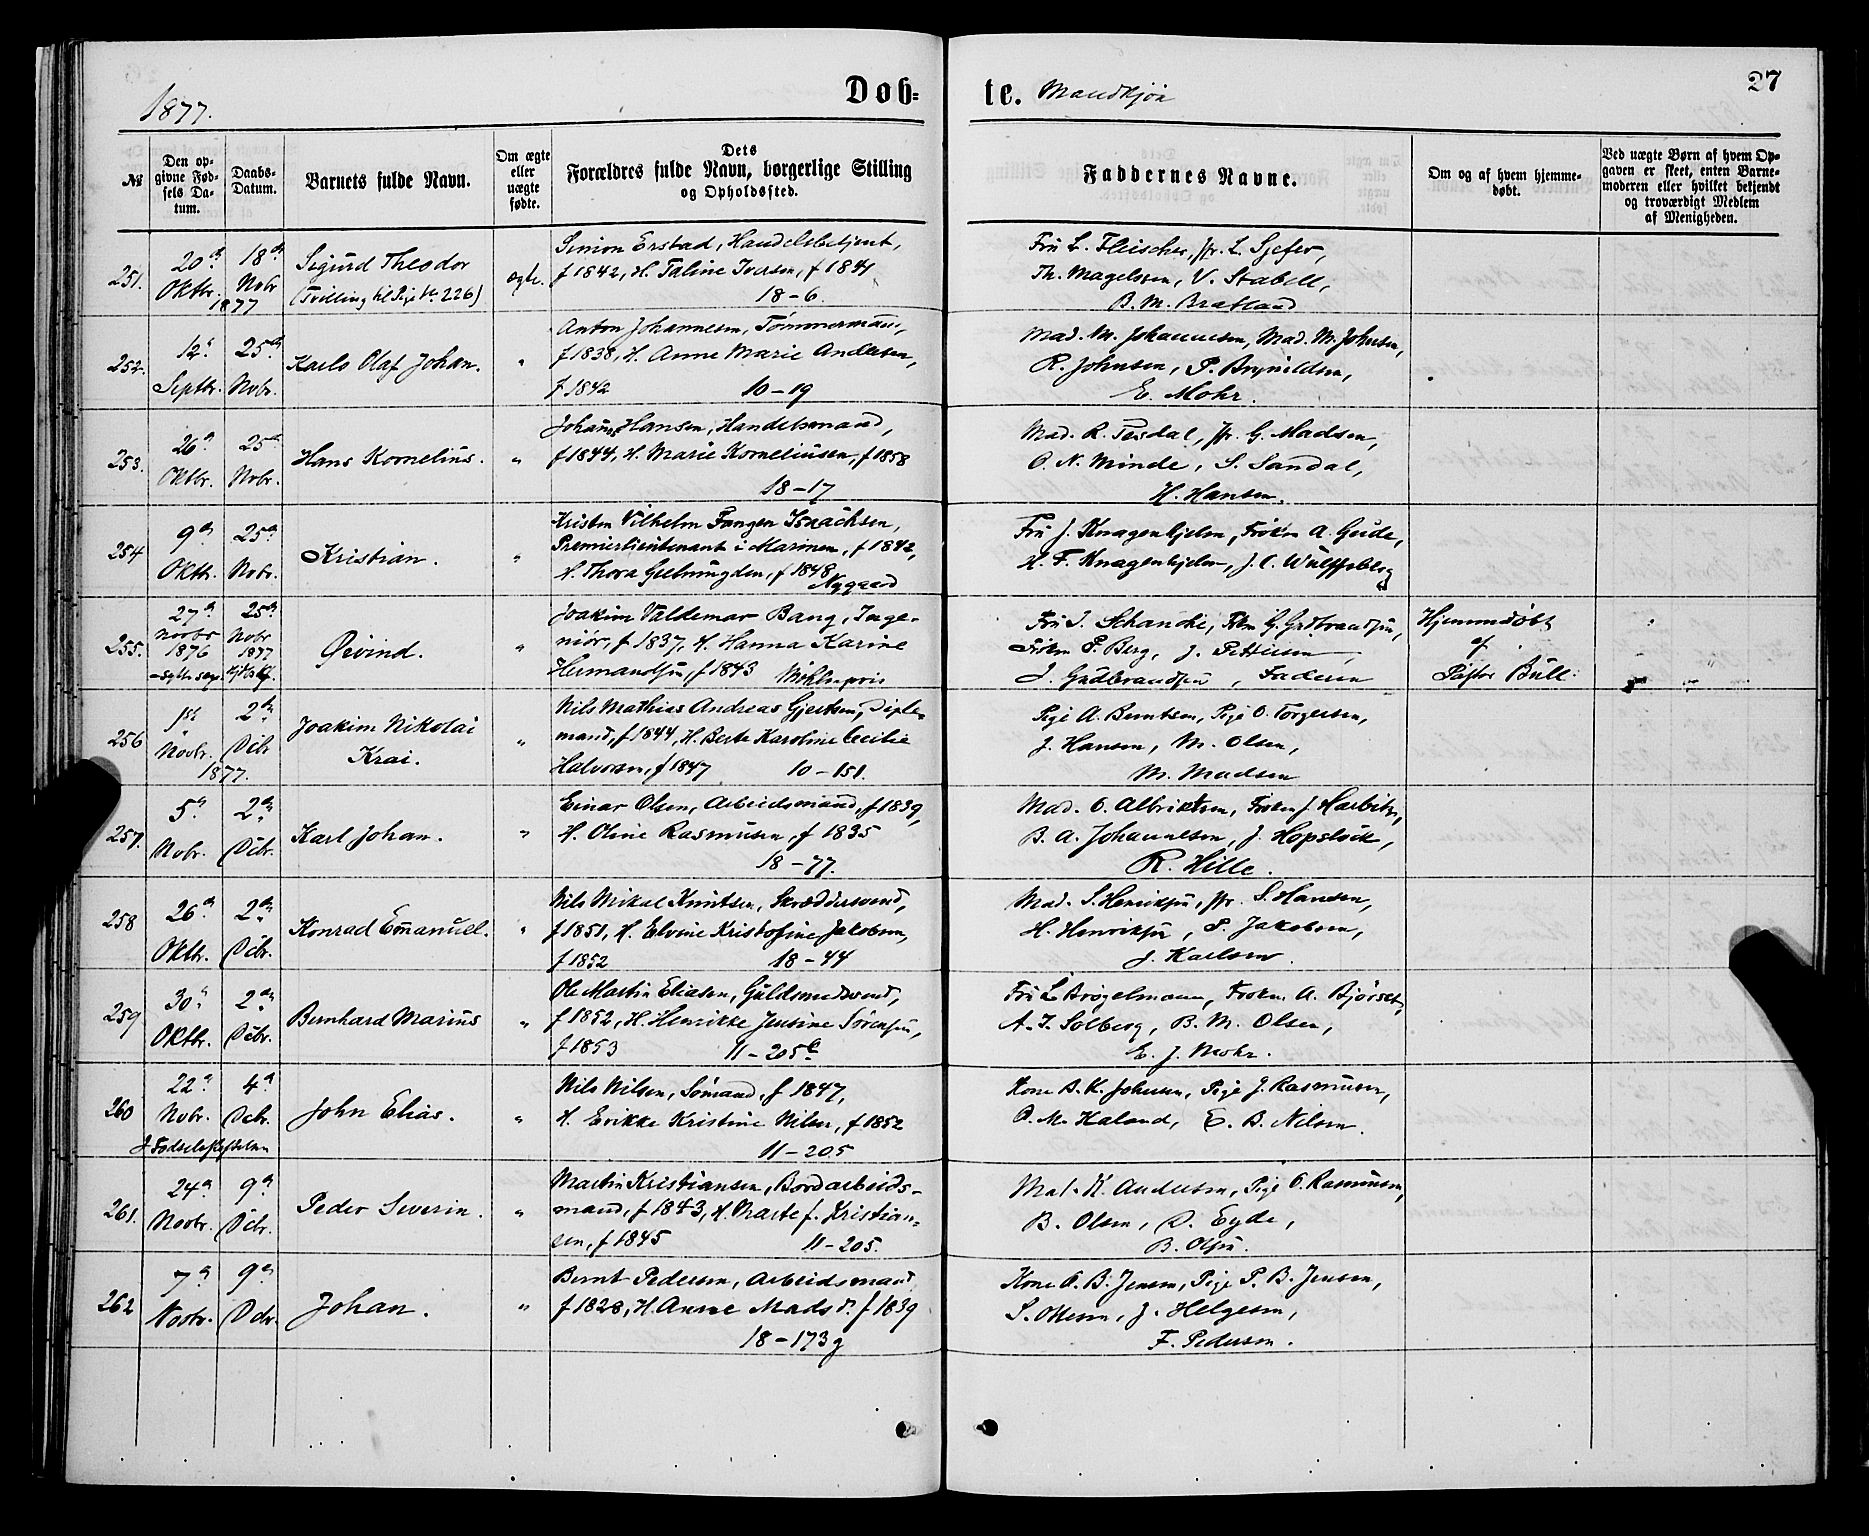 1877.
Døb-te. Mandkjøn
27
№
Den op-
givne Fød-
sels Da-
tum.
Daabs-
Datum.
Barnets fulde Navn.
Om ægte
eller
uægte
fødte.
Dets
Forældres fulde Navn, borgerlige Stilling
og Opholdssted.
Faddernes Navne.
Om og af hvem hjemme-
døbt.
Ved uægte Børn af hvem Op-
gaven er skeet, enten Barne-
moderen eller hvilket bekjendt
og troværdigt Medlem
af Menigheden.
251.
20de
Oktbr.
18de
Nobr
1877
Sigurd Theodor
(Tvilling til Pige No 226)
ægte.
Simon Erstad, Handelsbetjent,
f 1842, H. Taline Iversen, f 1841
18-6
Fru L. Fleischer, Jfr. L.
Th. Magelssen, V. Stabell,
B. M. Bratland
252.
12te
Septbr.
25de
Nobr.
Karlo Olaf Johan.
"
Anton Johannesen, Tømmermand,
f 1838, H. Anne Marie Andersen,
f 1842 10-19
Mad. M. Johannesen, Mad. M. Johnsen,
R. Johnsen, P. Brynildsen,
E. Mohr.
253.
26de
Oktbr.
25de
Nobr.
Hans Kornelius.
"
Johan Hansen, Handelsmand,
f 1844, H. Marie Korneliusen, f 1858
18-17
Mad. R. Tesdal, Jfr. G. Madsen,
O. N. Minde, S. Sandal,
H. Hansen.
254
9de
Oktbr.
25de
Nobr.
Kristian.
"
Kristen Vilhelm Fangen Isaachsen,
Premierlieutenant i Marinen, f 1842,
H. Thora Geelmuyden, f 1848
Nygaard
Fru J. Knagenhjelm, Frøken A. Geide,
H. F. Knagenhjelm, J. C. Wulffsberg
255.
27de
Novbr
1876
25de
Nobr
1877
Øivind.
"
Joakim Valdemar Bang, Inge-
niør, f 1837, H. Hanna Karine
Hermandsen, f 1843 Møhlenpris
Fru I. Schanche, Frkn G. Gudbrandsen,
Frøkn P. Berg, J. Pettersen,
J. Gudbrandsen, Faderen
Hjemmedøbt
af
Pastor Bull.
256
1ste
Novbr.
2den
Dcbr
1877.
Joakim Nikolai
Krai.
"
Nils Mathias Andreas Gjertsen,
mand, f 1844, H. Berte Karoline Cecilie
Halvorsen, f 1847 10-151.
Pige A. Berntsen, Pige O. Torgersen,
J. Hansen, M. Olsen,
M. Madsen
257.
5te
Nobr.
2den
Dcbr.
Karl Johan.
"
Einar Olsen, Arbeidsmand, f 1839,
H. Oline Rasmusen, f 1835
18-77.
Mad. O. Albriktsen, Frøken J. Harbitz,
B. A. Johannesen, J. Hopstock,
R. Hille.
258
26de
Oktbr.
2den
Dcbr.
Konrad Emanuel.
"
Nils Mikal Knutsen, Skræddersvend,
f 1851, H. Elvine Kristofine Jakobsen,
f 1852 18-44
Mad. S. Henriksen, Jfr. S. Hansen,
H. Henriksen, P. Jakobsen,
J. Karlsen.
259
30te
Oktbr.
2den
Dcbr.
Bernhard Marius
"
Ole Martin Eliasen, Guldsmedsvend,
f 1852, H. Henrikke Jensine Sørensen,
f 1853 11-205c
Fru L Brøgelmann, Frøken A. Bjørset,
A. I. Solberg, B. M. Olsen,
E. J. Mohr.
260
22de
Nobr.
4de
Dcbr.
I Fødselsstiftelsen
John Elias.
"
Nils Nilsen, Sømand, f 1847,
H. Erikke Kristine Nilsen, f 1852
11-205
Kone B. K. Johnsen, Pige J. Rasmusen,
O. M. Haland, E. B. Nilsen.
261.
24de
Novbr.
9de
Dcbr.
Peder Severin.
"
Martin Kristiansen, Bordarbeids-
mand, f 1843, H. Marte f. Kristian-
sen, f 1845 11-205.
Mad. K. Andersen, Pige O. Rasmusen,
B. Olsen, D. Eyde,
B. Olsen.
262
7de
Novbr.
9de
Dcbr.
Johan.
"
Bernt Pedersen, Arbeidsmand
f 1828, H. Anne Mads d. f 1839
18-173g
Kone O. B. Jensen, Pige P. B. Jensen,
S. Ottesen, J. Helgesen,
F. Pedersen.